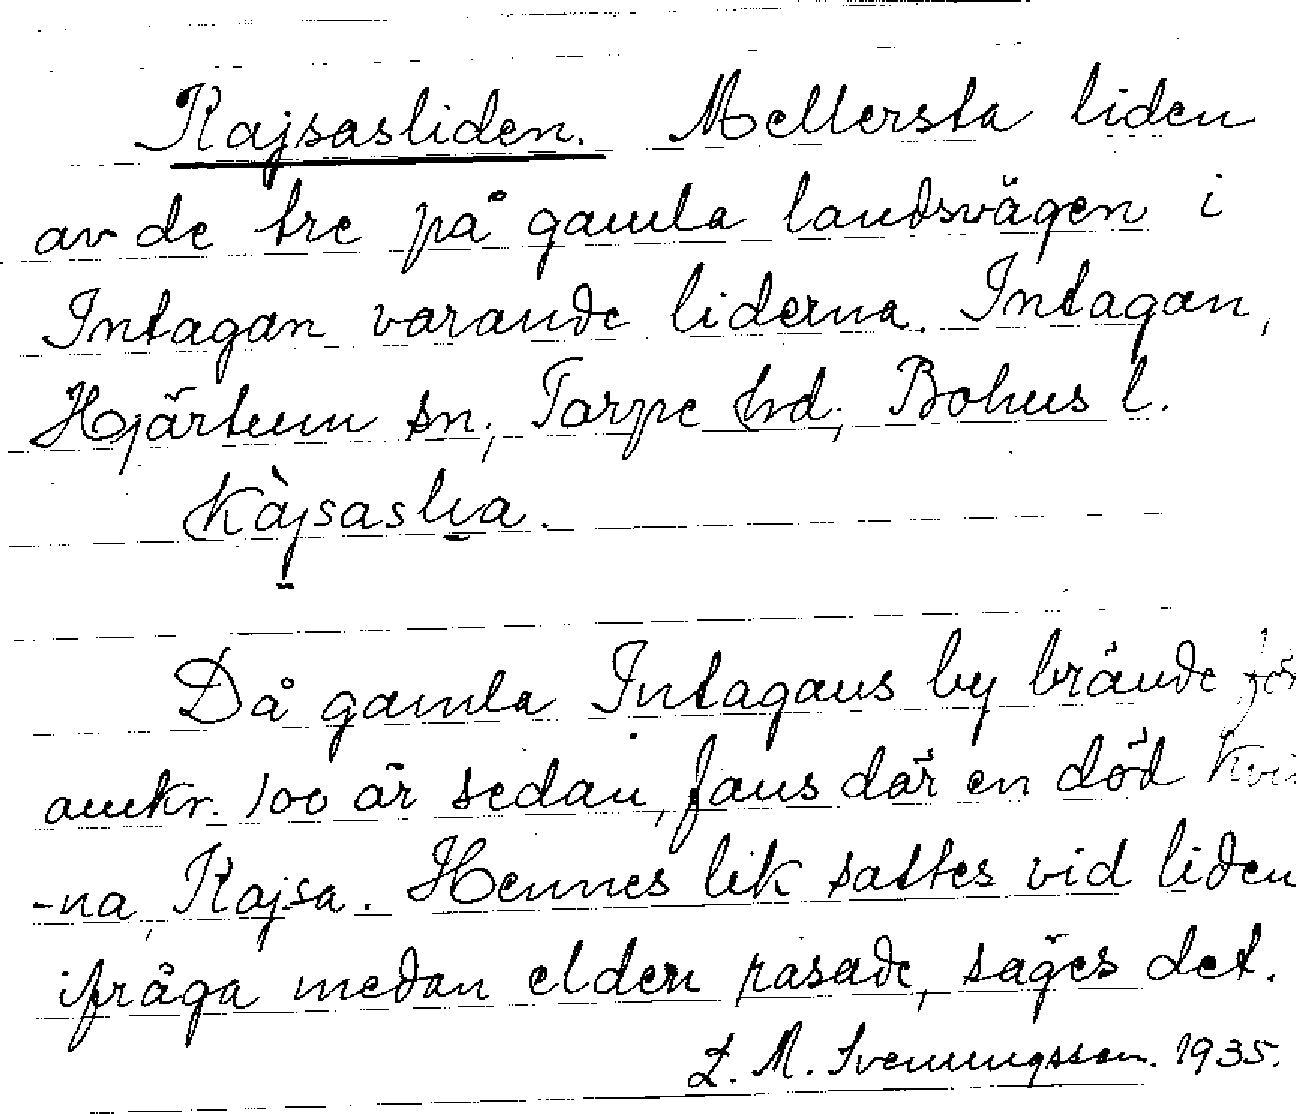 Kajsasliden. Mellersta liden
av de tre på gamla landsvägen i
Intagan varande liderna. Intagan,
Hjärtum sn, Torpe hd, Bohus l.
Kàjsaslia.
Då gamla Intagans by brände för
omkr. 100 år sedan, fans där en död kvi
-na, Kajsa. Hennes lik sattes vid liden
ifråga medan elden rasade, säges det.
L. M. Svenungsson. 1935.